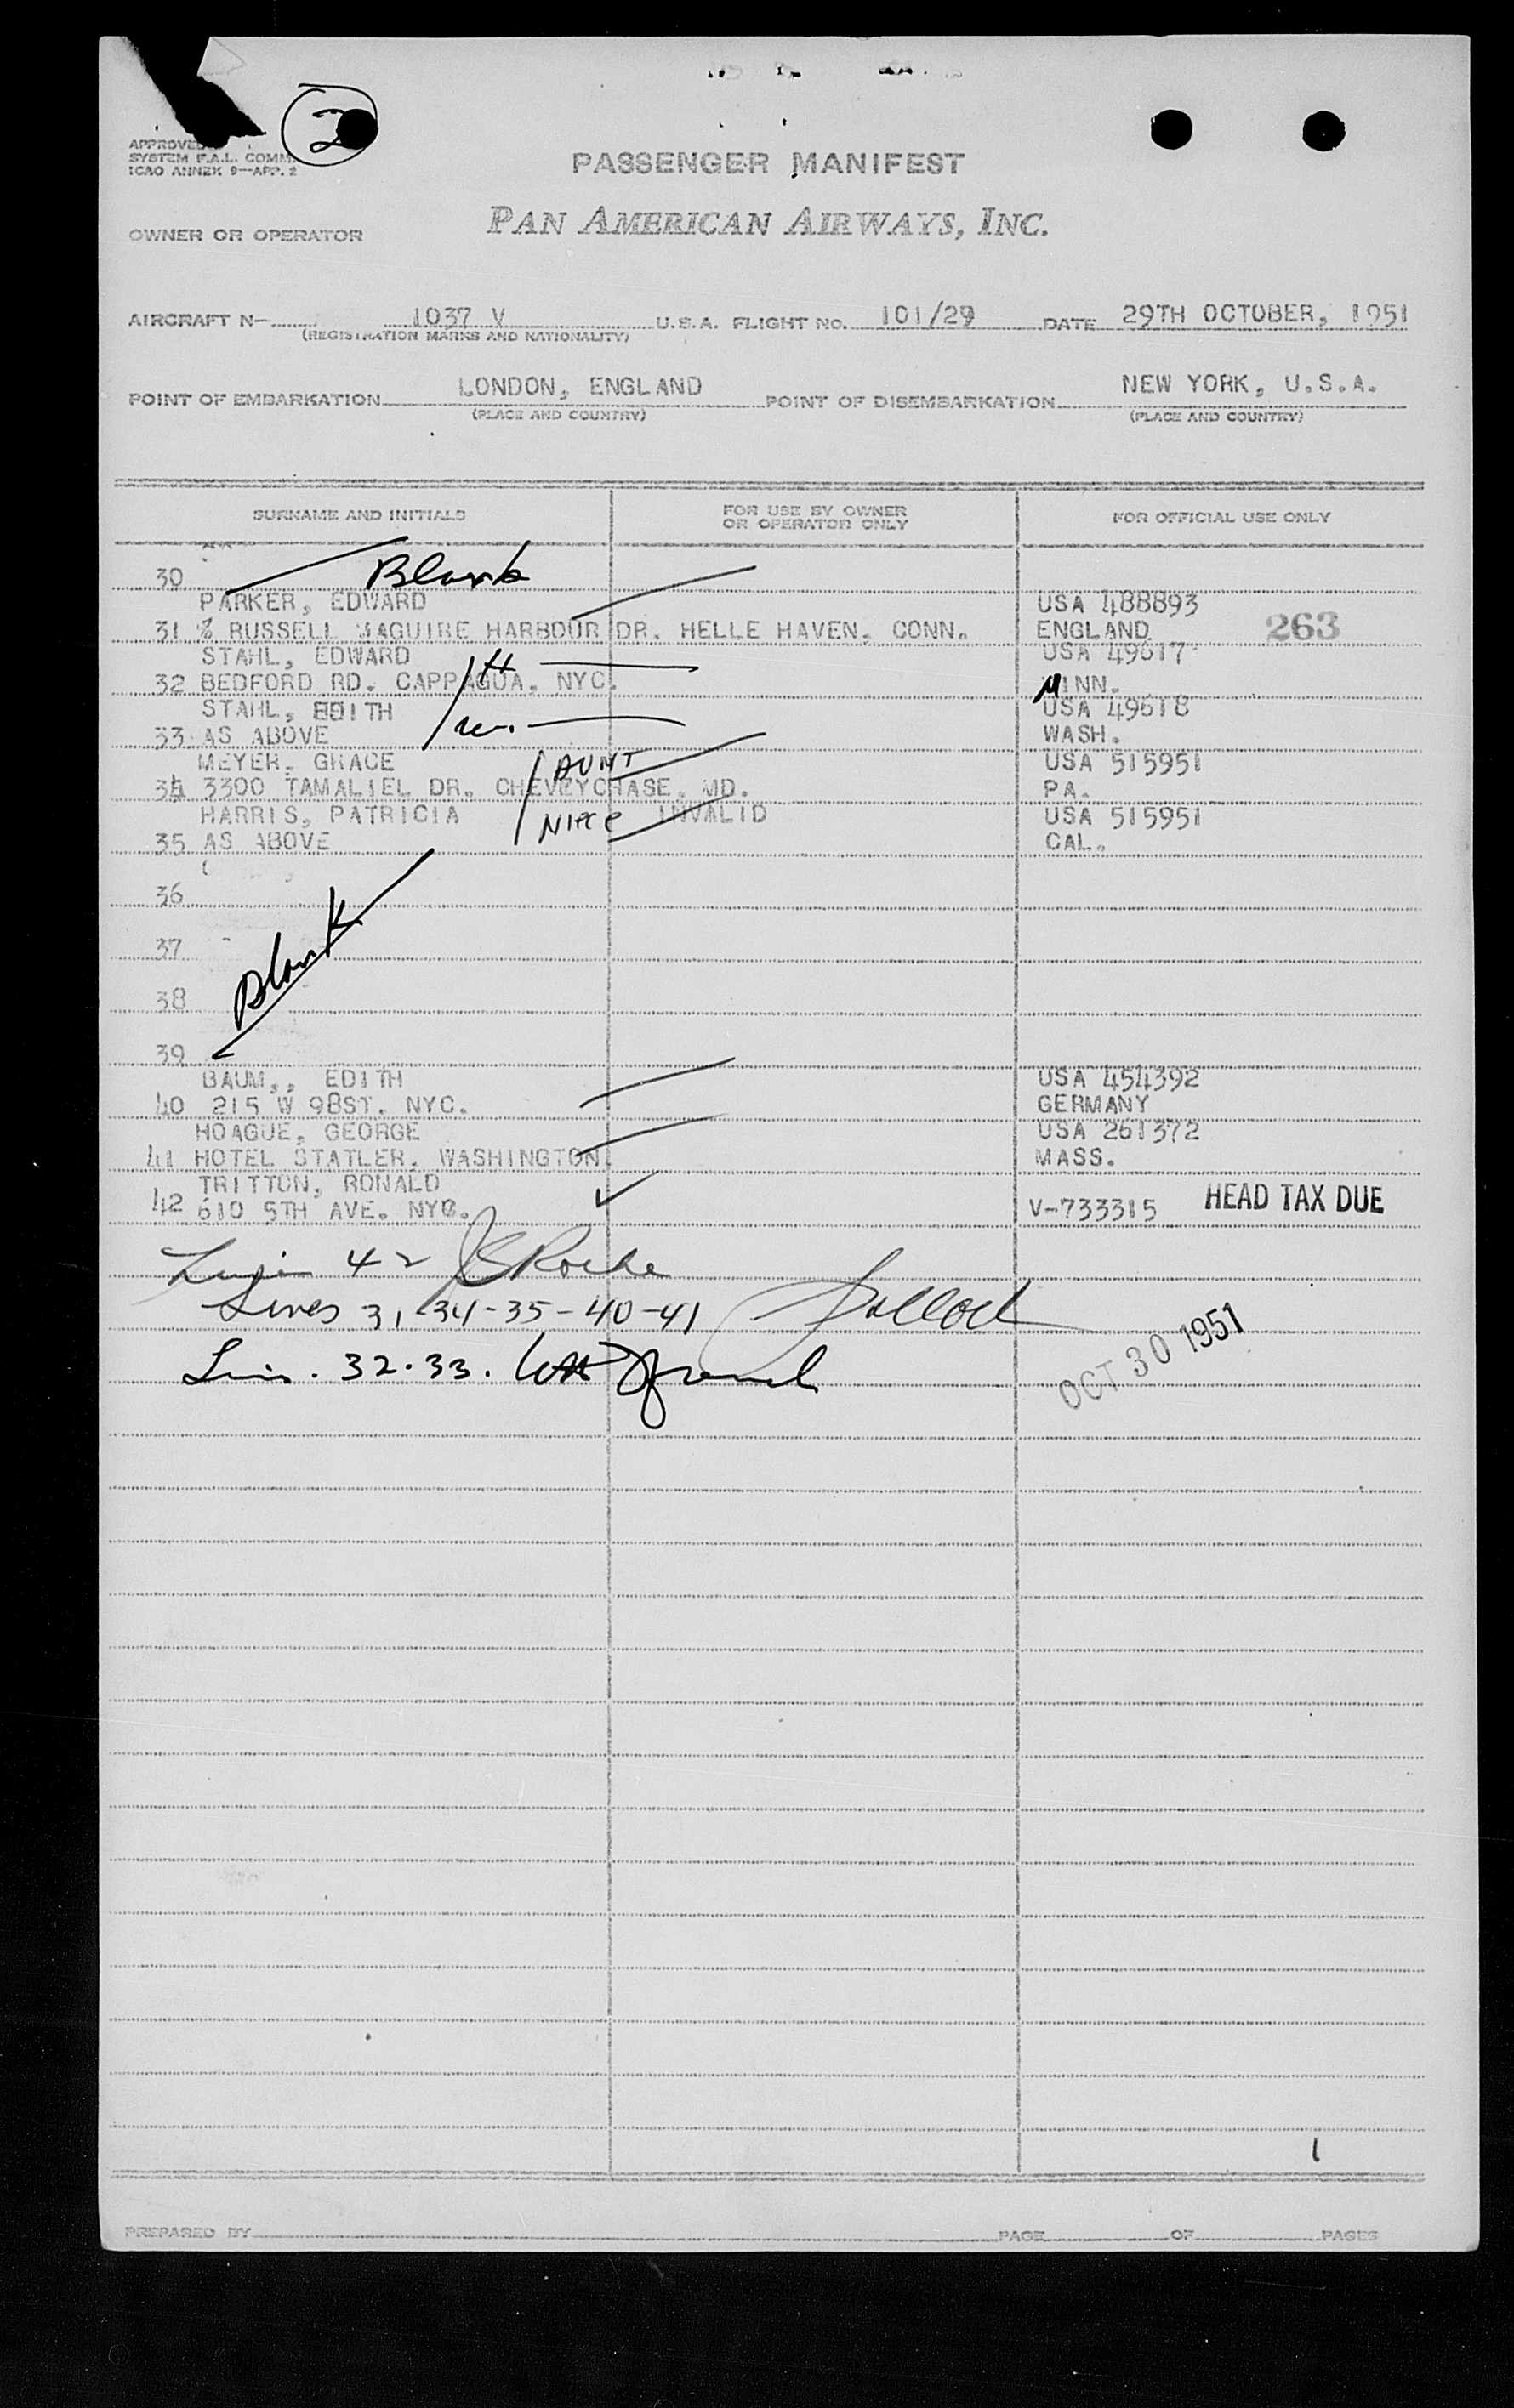 2
APPROVED
SYSTEM F.A.L. COMM.
ICAO ANNEX 9—APP. 2
PASSENGER MANIFEST
OWNER OR OPERATOR PAN AMERICAN AIRWAYS, INC.
AIRCRAFT N- 1037 V U.S.A. FLIGHT NO. 101/29 DATE 29TH OCTOBER, 1951
(REGISTRATION MARKS AND NATIONALITY)
POINT OF EMBARKATION LONDON, ENGLAND POINT OF DISEMBARKATION NEW YORK, U.S.A.
(PLACE AND COUNTRY) (PLACE AND COUNTRY)
SURNAME AND INITIALS FOR USE BY OWNER OR OPERATOR ONLY FOR OFFICIAL USE ONLY
30 Blank
PARKER, EDWARD USA 488893
31 % RUSSELL MAGUIRE HARBOUR DR. HELLE HAVEN. CONN. ENGLAND 263
STAHL, EDWARD USA 49617
32 BEDFORD RD. CAPPAQUA. NYC. H MINN.
STAHL, EDITH USA 49618
33 AS ABOVE w. WASH.
MEYER, GRACE AUNT USA 515951
34 3300 TAMALIEL DR. CHEVEYCHASE. MD. PA.
HARRIS, PATRICIA NIECE INVALID USA 515951
35 AS ABOVE CAL.
36
37
Blank
38
39
BAUM,, EDITH USA 454392
40 215 W 98ST. NYC. GERMANY
HOAGUE, GEORGE USA 261372
41 HOTEL STATLER, WASHINGTON. MASS.
TRITTON, RONALD
42 610 5TH AVE. NYC. V-733315 HEAD TAX DUE
42 Roche
Lines 31-34-35-40-41
OCT 30 1951
32.33.
PREPARED BY PAGE OF PAGES